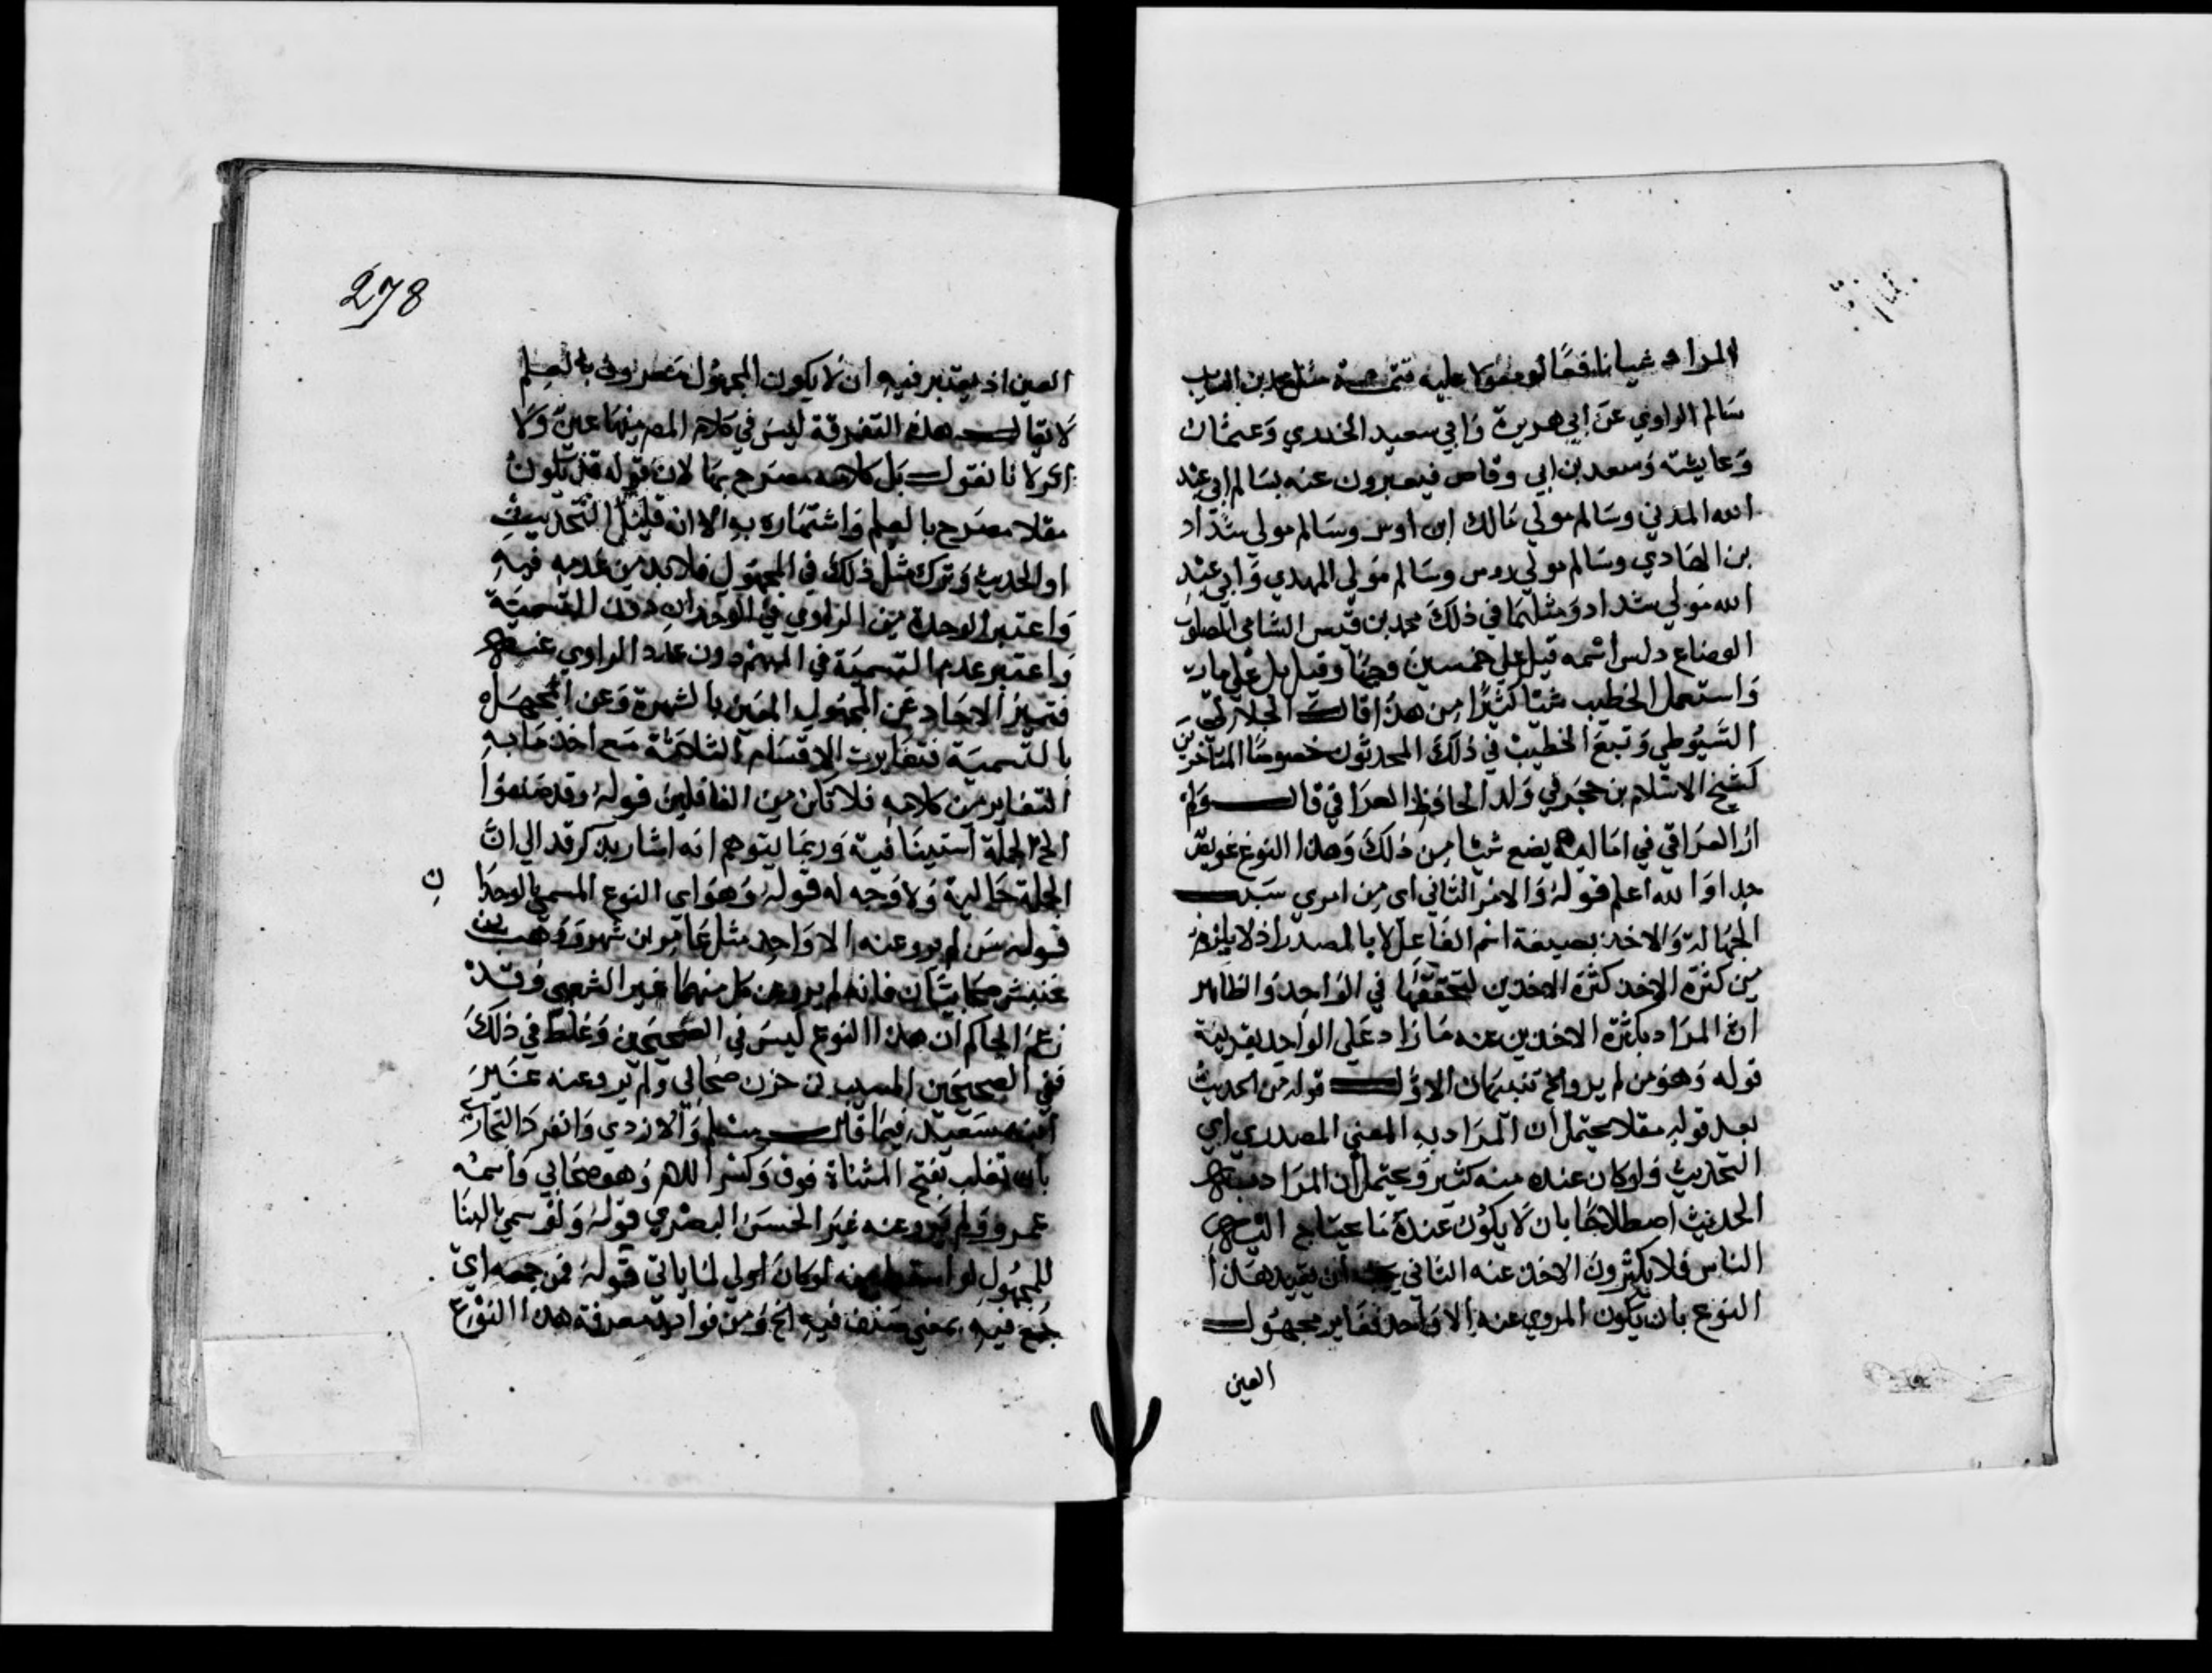 المراد عيانا نافعا لو معولا عليه تتمة مثل محمد بن السايب
سالم الراوي عن ابي هريرة وابي سعيد الخدري وعثمان
وعايشة وسعد بن ابي وقاص فيعبرون عنه بسالم ابي عبد
الله المدني وسالم مولي مالك ابن اوس وسالم مولي شداد
بن الهادي وسالم مولي دوس وسالم مولى المهدي وابي عبد
الله مولي شداد ومثلهما في ذلك محمد بن قيس الشامي المصلوب
الوضاع دلس اسمه قيل علي خمسين وجها وقيل بل علي ماية
واستعمل الخطيب شيا كثيرا من هذا قال الجلال
السيوطي وتبع الخطيب في ذلك المحدثون خصوصا المتاخرين
كشيخ الاسلام بن حجر في ولد الحافظ العراقي قال ولم
ار العراقي في اماليه يضع شيا من ذلك وهذا النوع عويص
جدا والله اعلم قوله والامر الثاني اى من امري سبب
الجهالة والاخذ بصيغة اسم الفاعل لا بالمصدر اذ لا يلزم
من كثرة الاخذ كثرة الاخذين لتحققها في الواحد والظاهر
ان المراد بكثرة الاخذين عنه ما زاد على الواحد بقرينة
قوله وهو من لم يرو الخ تنبيهان الاول قوله من الحديث
بعد قوله مقلا يحتمل ان المراد به المعني المصدري اي
التحديث ولو كان عنده منه كثير ويحتمل ان المراد منه
الحديث اصطلاحا بان لا يكون عنده ما يحتاج اليه
الناس فلا يكثرون الاخذ عنه الثاني يجب ان يقيد هذا
النوع بان يكون المروي عنه الا واحد فغاير مجهول
العين
278
العين اذ يعتبر فيه ان لا يكون المجهول معروف بالعلم
لا يقال هذه التفرقة ليس في كلام المص منها عين ولا
اثر لانا نقول بل كلامه مصرح بها لان قوله قد يكون
مقلا مصرح بالعلم واشتهاره به الا انه قليل التحديث
او الحديث وترك مثل ذلك في المجهول فلا بد من عدمه فيه
واعتبر الوحدة من الراوي في الوحدان دون التسمية
واعتبر عدم التسمية في المبهم دون عدد الراوي عنه
فتميز الاحاد عن المجهول العين بالشهرة وعن المجهل
بالتسمية فتغايرت الاقسام الثلاثة مع اخذ ما به
التغاير من كلامه فلا تكن من الغافلين قوله وقد صنفوا
الخ الجملة استينافية وربما يتوهم انه اشار بذكر قد الى ان
الجملة حالية ولا وجه له قوله وهو اى النوع المسمي بالوحدا
ن
قوله من لم يرو عنه الا واحد مثل عامر بن شهر ووهب بن
خنبش صحابيان فانه لم يرو عن كل منهما غير الشعبي وقد
زعم الحاكم ان هذا النوع ليس في الصحيحين وغلط في ذلك
ففي الصحيحين المسيب بن حزن صحابي ولم يرو عنه غير
ابنه سعيد فيما قال مسلم والازدي وانفرد البخاري
بابن تغلب بفتح المثناة فوق وكسر اللام وهو صحابي واسمه
عمرو ولم يرو عنه غير الحسن البصري قوله ولو سمي بالبنا
للمجهول لو اسقط لو كان اولي لما ياتي قوله فمن جمعه اي
جمع فيه بمعني صنف فيه الخ ومن فوايد معرفة هذا النوع